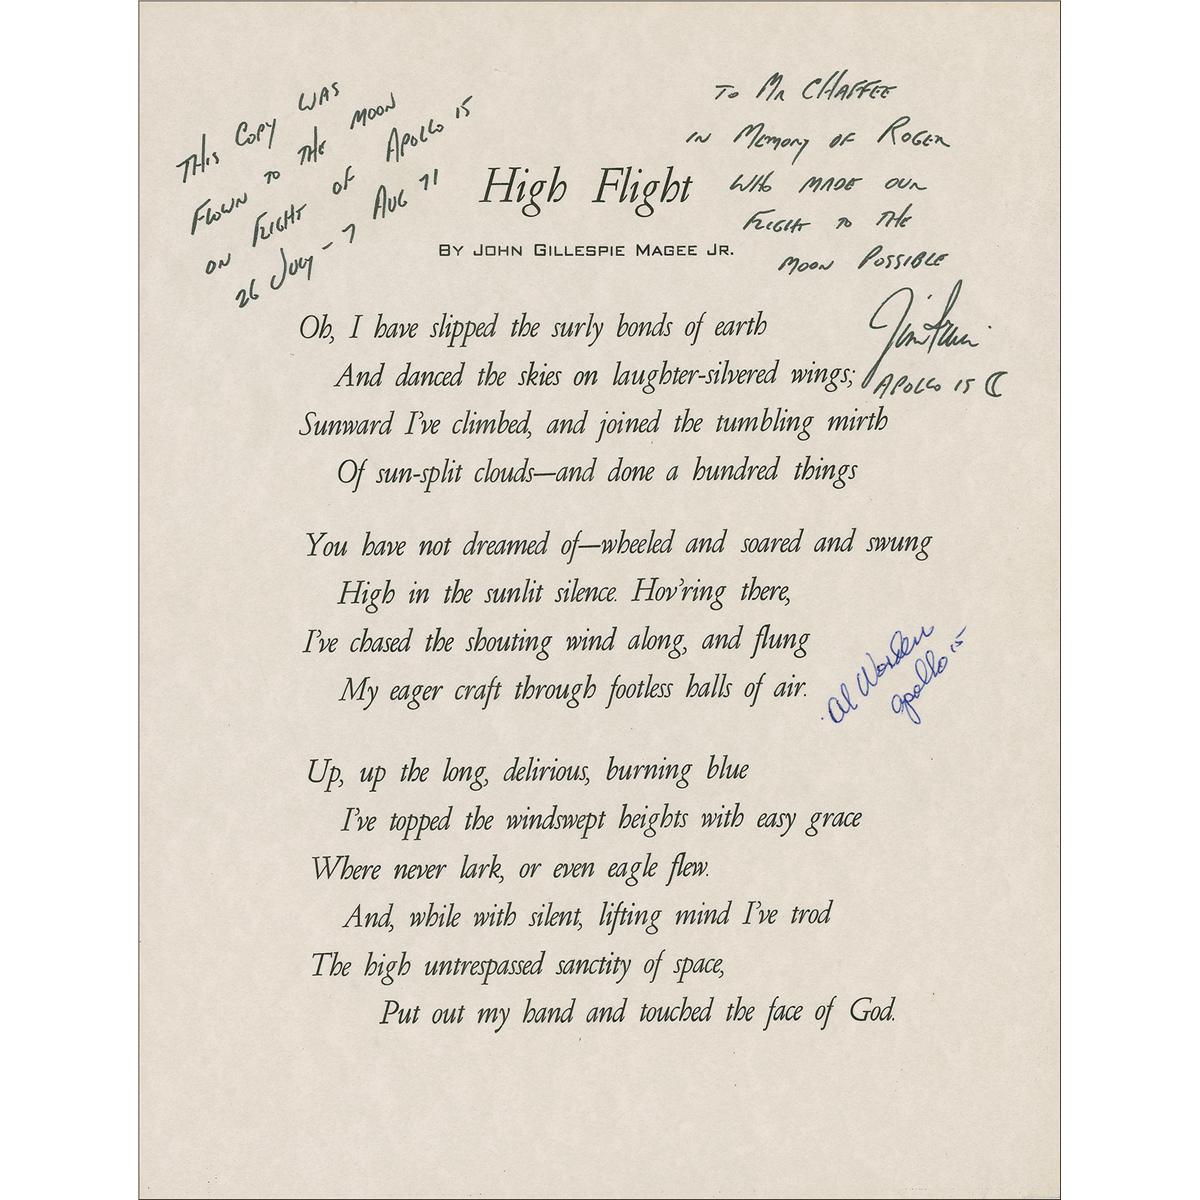 THIS COPY WAS
FLOWN TO THE MOON
ON FLIGHT OF APOLLO 15
26 JULY – 7 AUG 71
TO MR CHAFFEE
IN MEMORY OF ROGER
WHO MADE OUR
FLIGHT TO THE
MOON POSSIBLE
Jim Irwin
APOLLO 15
High Flight
BY JOHN GILLESPIE MAGEE JR.
Oh, I have slipped the surly bonds of earth
And danced the skies on laughter-silvered wings;
Sunward I've climbed, and joined the tumbling mirth
Of sun-split clouds—and done a hundred things
You have not dreamed of—wheeled and soared and swung
High in the sunlit silence. Hov'ring there,
I've chased the shouting wind along, and flung
My eager craft through footless halls of air.
Al Worden
Apollo 15
Up, up the long, delirious, burning blue
I've topped the windswept heights with easy grace
Where never lark, or even eagle flew.
And, while with silent, lifting mind I've trod
The high untrespassed sanctity of space,
Put out my hand and touched the face of God.